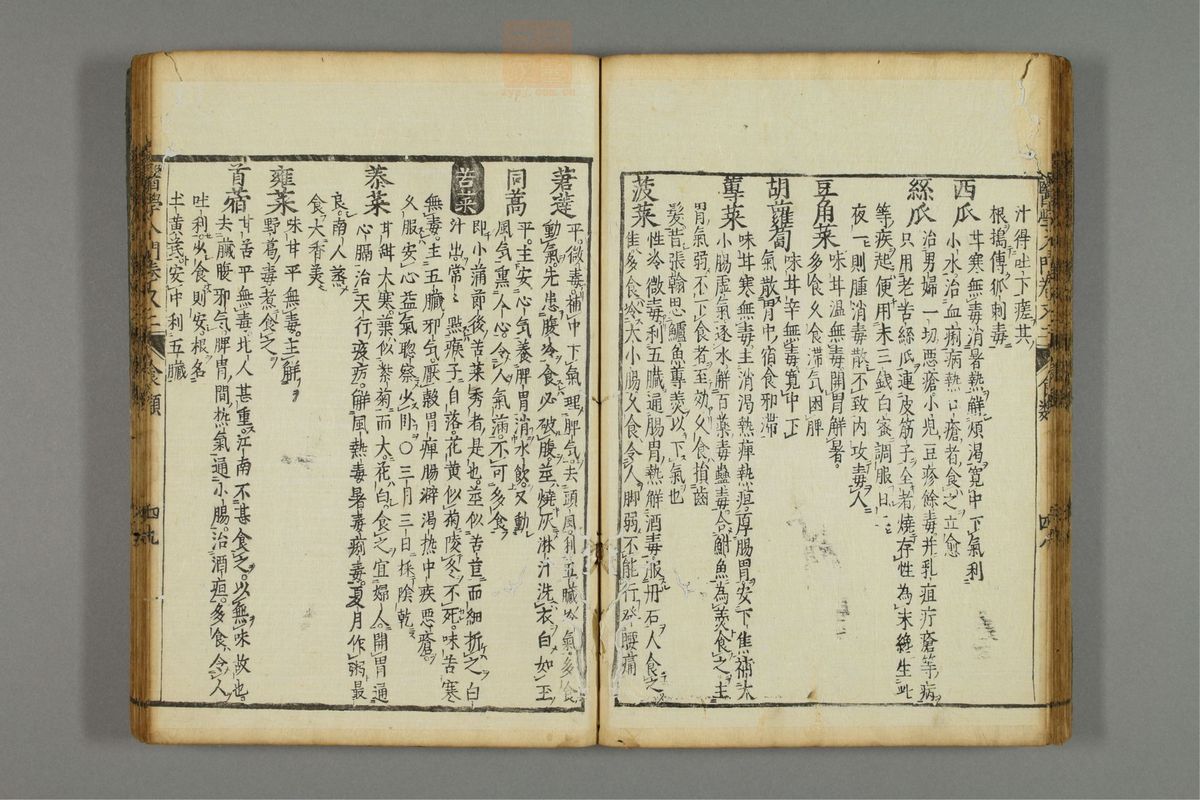 汁得吐下瘥其
根搗傅狐刺毒
西瓜 甘寒無毒消暑熱解煩渴寬中下氣利
小水治血痢病熱口瘡者食之立愈
絲瓜 治男婦一切惡瘡小兒豆疹餘毒并乳疽疔瘡等病
只用老苦絲瓜連皮筋子全者燒存性為末
等疾起便用末三錢白蜜調服日二
夜一則腫消毒散不致内攻毒人
豆角菜 味甘温無毒開胃解暑
多食久食滯气困脾
胡蘿蔔 味甘辛無毒寬中下
氣散胃中宿食邪滯
蓴菜 味甘寒無毒主消渴熱痺熱疽厚腸胃安下焦補大
小腸虛氣逐水解百藥毒蠱毒合鮒魚為羹食之主
胃氣弱不下食者至効久食損齒
髪昔張翰思鱸魚蓴羹以下氣也
菠菜 性冷微毒利五臓通腸胃熱解酒毒服丹石人食之
佳多食冷大小腸久食令人脚弱不能行發腰痛
莙薘 平微毒補中下氣理脾气去頭風利五臓冷氣多食
動氣先患腹冷食必破腹莖燒灰淋汁洗衣白如玉
同蒿 平主安心气養脾胃消水飲又動
風气熏人心令人氣滿不可多食
苦菜 即小蒲節後苦菜秀者是也莖似苦苣而細折之白
汁出常常點瘊子自落花黄似菊陵冬不死味苦寒
無毒主五臓邪气厭穀胃痺腸澼渴热中疾惡瘡
久服安心益氣聡察少卧〇三月三日採陰乾
菾菜 甘
心膈治天行
良南人蒸
食大香美
蕹菜 味甘平無毒主解
野葛毒煮食之
苜蓿 甘苦平無毒北人甚重江南不甚食之以無味故也
去臓腹邪气脾胃間热氣通小腸治酒疸多食令人
吐利少食則安根名
土黄芪安中利五臓
醫學入門卷之二 食類 四九